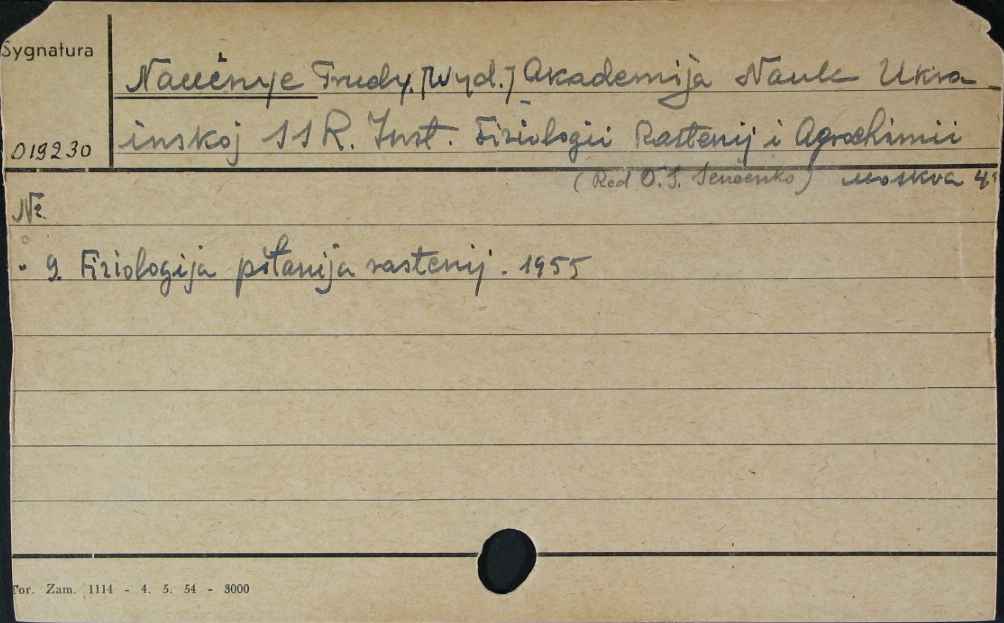 Sygnatura
Naučnye Trudy. [Wyd.] Akademija Nauk Ukra-
019230 inskoj SSR. Inst. Fiziologii Rastenij i Agrochimii
(Red O. S. Senčenko) Moskva 4°
Nr.
9. Fiziologija pitanija rastenij. 1955
Tor. Zam. 1114 - 4. 5. 54 - 3000